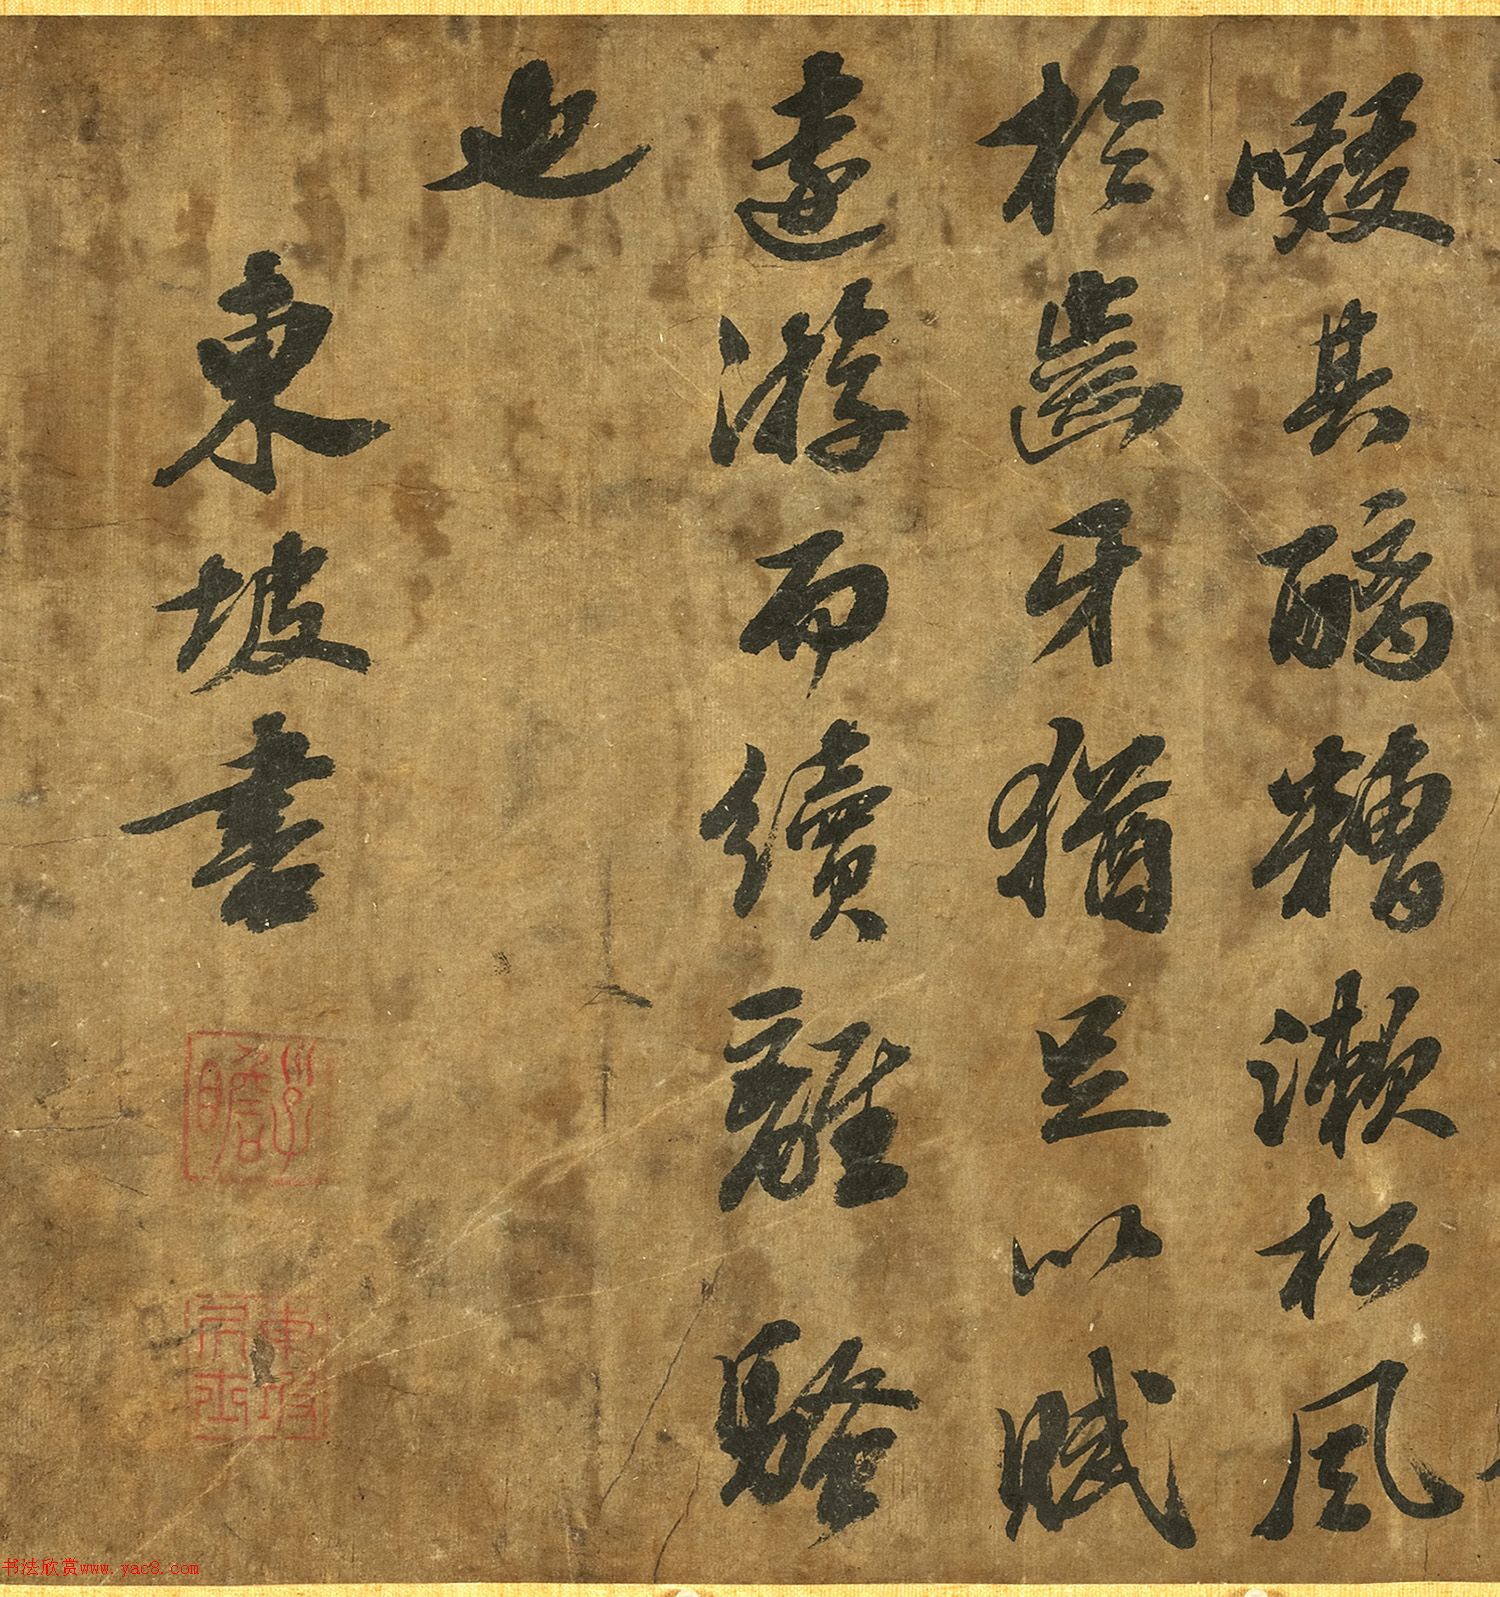 啜其醨糟漱松風
於齒牙猶足以賦
遠游而續離騷
也
東坡書
子瞻
东坡居士
书法欣赏www.yac8.com